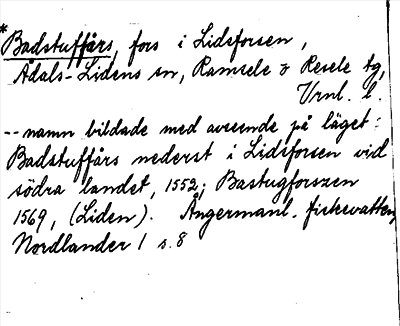 *Badstuffårs, fors i Lidsforsen,
Ådals-Lidens sn, Ramsele o Resele tg,
Vrnl. l.
-- namn bildade med avseende på läget:
Badstuffårs nederst i Lidsforsen vid
södra landet, 1552; Bastugforszen
1569, (Liden). Ångermanl. fiskevatten,
Nordlander 1 s. 8